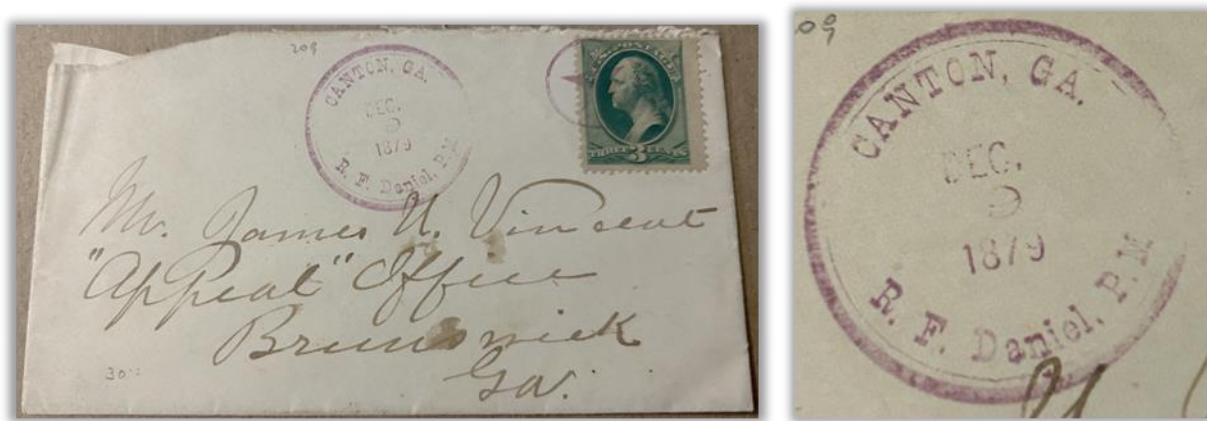 209
CANTON, GA.
DEC.
9
1879
R. F. Daniel, P.M
U.S. POSTAGE
THREE 3 CENTS
Mr. James U. Vincent
"Appeal" Office
Brunswick
Ga.
30
09
CANTON, GA.
DEC.
9
1879
R. F. Daniel, P.M